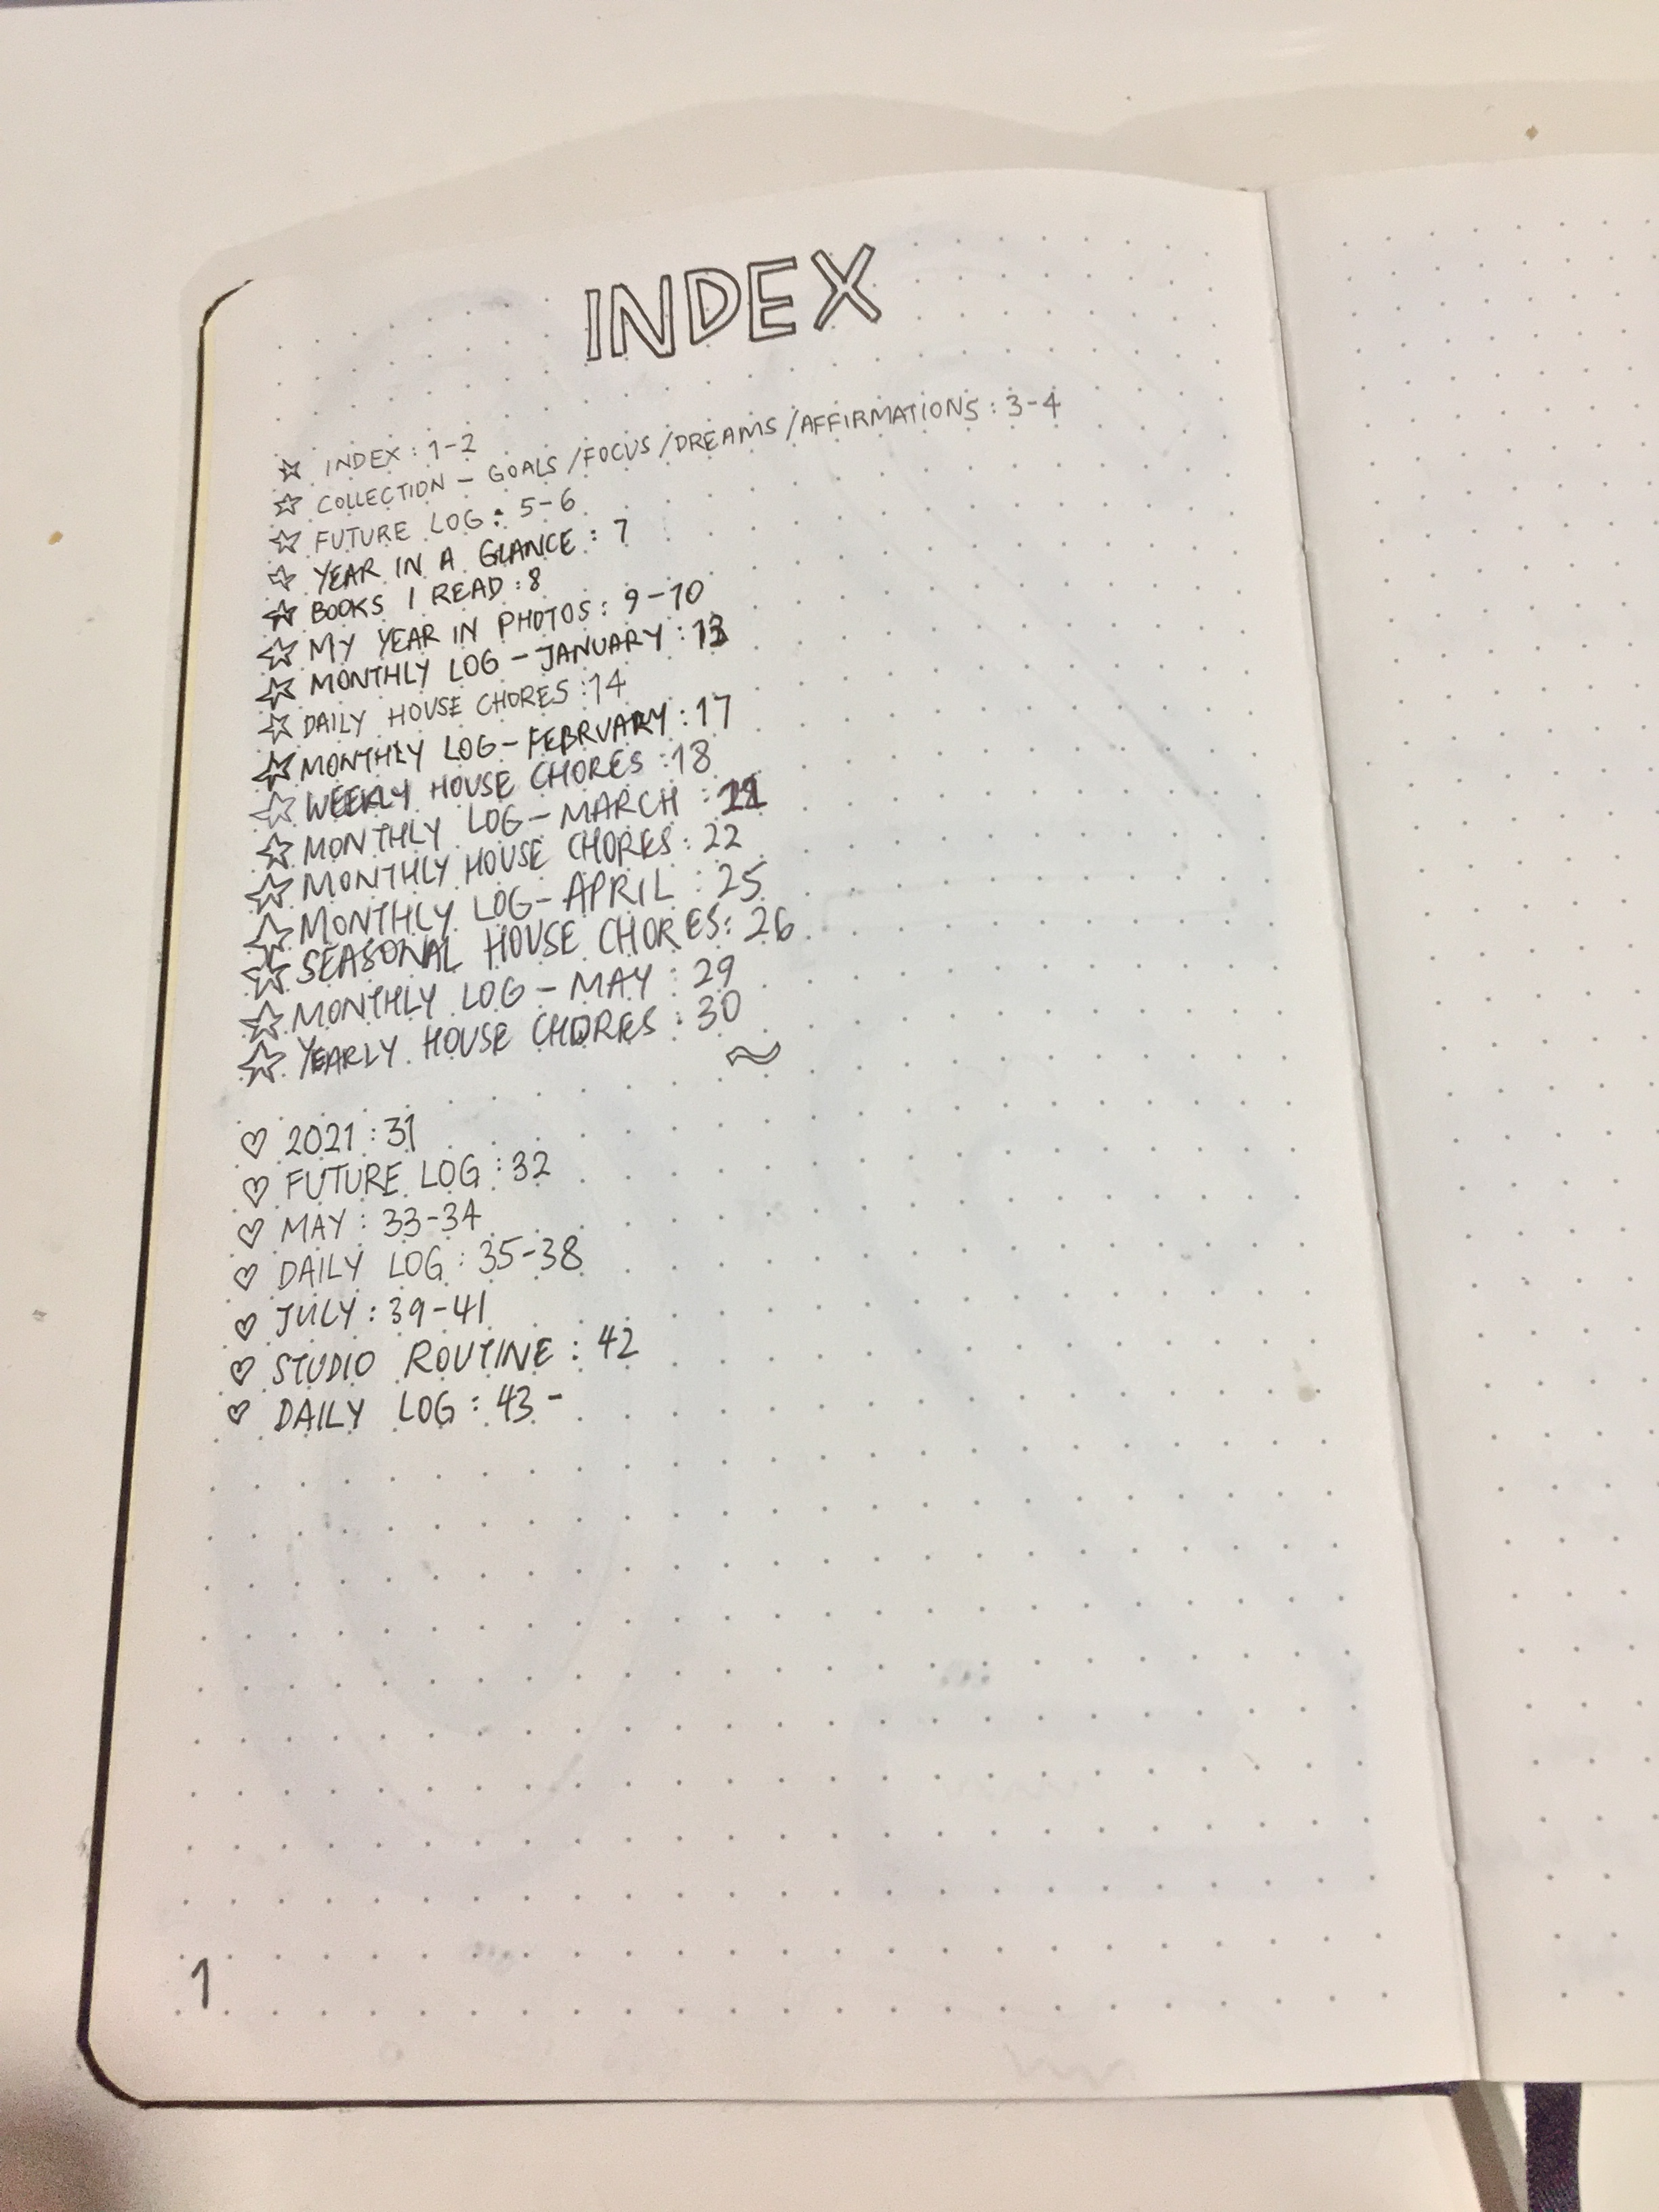 INDEX
☆ INDEX : 1-2
☆ COLLECTION - GOALS /FOCUS /DREAMS /AFFIRMATIONS : 3-4
☆ FUTURE LOG : 5-6
☆ YEAR IN A GLANCE : 7
☆ BOOKS I READ : 8
☆ MY YEAR IN PHOTOS : 9-10
☆ MONTHLY LOG - JANUARY : 13
☆ DAILY HOUSE CHORES : 14
☆ MONTHLY LOG - FEBRUARY : 17
☆ WEEKLY HOUSE CHORES : 18
☆ MONTHLY LOG - MARCH :
☆ MONTHLY HOUSE CHORES : 22
☆ MONTHLY LOG - APRIL : 25
☆ SEASONAL HOUSE CHORES : 26
☆ MONTHLY LOG - MAY : 29
☆ YEARLY HOUSE CHORES : 30
~
♡ 2021 : 31
♡ FUTURE LOG : 32
♡ MAY : 33-34
♡ DAILY LOG : 35-38
♡ JULY : 39-41
♡ STUDIO ROUTINE : 42
♡ DAILY LOG : 43 -
1